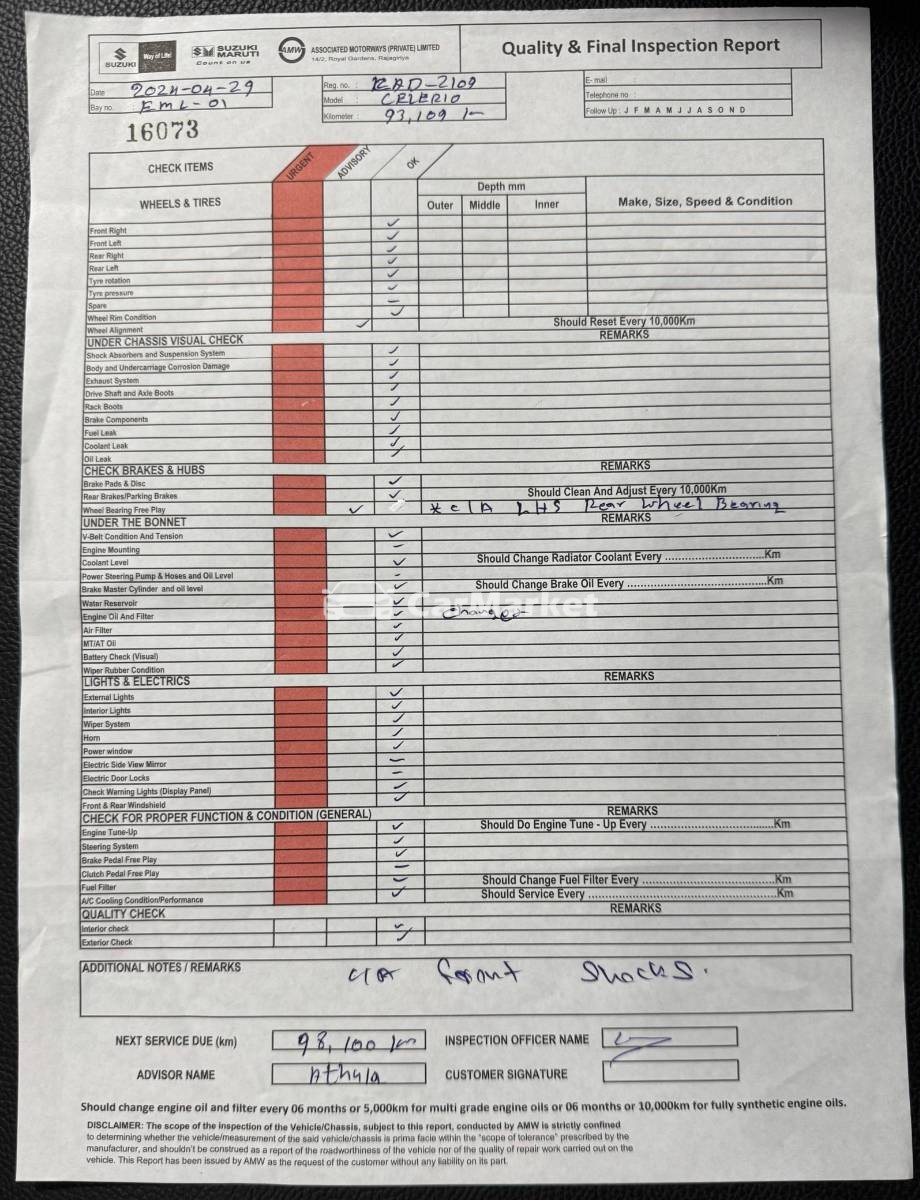 SUZUKI
Way of Life!
SUZUKI MARUTI
Count on us
AMW
ASSOCIATED MOTORWAYS (PRIVATE) LIMITED
14/2, Royal Gardens, Rajagiriya
Quality & Final Inspection Report
Date 2024-04-29
Bay no. : EML-01
Reg. no. : CAD-2109
Model CELERIO
Kilometer : 93,109 km
E- mail :
Telephone no :
Follow Up : J F M A M J J A S O N D
16073
CHECK ITEMS URGENT ADVISORY OK
WHEELS & TIRES
Depth mm
Outer Middle Inner
Make, Size, Speed & Condition
Front Right
Front Left
Rear Right
Rear Left
Tyre rotation
Tyre pressure
Spare
Wheel Rim Condition
Wheel Alignment Should Reset Every 10,000Km
UNDER CHASSIS VISUAL CHECK REMARKS
Shock Absorbers and Suspension System
Body and Undercarriage Corrosion Damage
Exhaust System
Drive Shaft and Axle Boots
Rack Boots
Brake Components
Fuel Leak
Coolant Leak
Oil Leak
CHECK BRAKES & HUBS REMARKS
Brake Pads & Disc
Rear Brakes/Parking Brakes Should Clean And Adjust Every 10,000Km
Wheel Bearing Free Play * C/A LHS Rear Wheel Bearing
UNDER THE BONNET REMARKS
V-Belt Condition And Tension
Engine Mounting
Coolant Level Should Change Radiator Coolant Every ..............................Km
Power Steering Pump & Hoses and Oil Level
Brake Master Cylinder and oil level Should Change Brake Oil Every ..........................................Km
Water Reservoir
CarMarket
Engine Oil And Filter Changed
Air Filter
MT/AT Oil
Battery Check (Visual)
Wiper Rubber Condition
LIGHTS & ELECTRICS REMARKS
External Lights
Interior Lights
Wiper System
Horn
Power window
Electric Side View Mirror
Electric Door Locks
Check Warning Lights (Display Panel)
Front & Rear Windshield
CHECK FOR PROPER FUNCTION & CONDITION (GENERAL) REMARKS
Engine Tune-Up Should Do Engine Tune - Up Every .....................................Km
Steering System
Brake Pedal Free Play
Clutch Pedal Free Play
Fuel Filter Should Change Fuel Filter Every .......................................Km
A/C Cooling Condition/Performance Should Service Every .........................................................Km
QUALITY CHECK REMARKS
Interior check
Exterior Check
ADDITIONAL NOTES / REMARKS
C/A front shocks.
NEXT SERVICE DUE (km) 98,100 km INSPECTION OFFICER NAME
ADVISOR NAME Athula CUSTOMER SIGNATURE
Should change engine oil and filter every 06 months or 5,000km for multi grade engine oils or 06 months or 10,000km for fully synthetic engine oils.
DISCLAIMER: The scope of the inspection of the Vehicle/Chassis, subject to this report, conducted by AMW is strictly confined
to determining whether the vehicle/measurement of the said vehicle/chassis is prima facie within the "scope of tolerance" prescribed by the
manufacturer, and shouldn't be construed as a report of the roadworthiness of the vehicle nor of the quality of repair work carried out on the
vehicle. This Report has been issued by AMW as the request of the customer without any liability on its part.